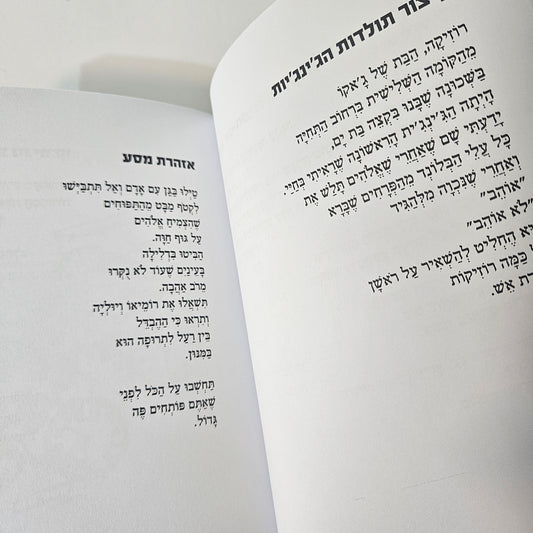 צור תולדות הג'ינג'יות
רוֹזִיקָה, הַבַּת שֶׁל גָ'אקוֹ
מֵהַקּוֹמָה הַשְּׁלִישִׁית בִּרְחוֹב הַתְּחִיָּה
בַּשְּׁכוּנָה שֶׁבָּנוּ בִּקְצֵה בַּת יָם,
הָיְתָה הַגִּ'ינְגִ'ית הָרִאשׁוֹנָה שֶׁרָאִיתִי בְּחַיַּי.
יָדַעְתִּי שָׁם שֶׁאַחֲרֵי שֶׁאֱלֹהִים תָּלַשׁ אֶת
כָּל עֲלֵי הַבְּלוֹנְד מֵהַפְּרָחִים שֶׁבָּרָא
וְאַחֲרֵי שֶׁנִּכְוָה מִלְּהַגִּיד
"אוֹהֵב"
"לֹא אוֹהֵב"
הֶחְלִיט לְהַשְׁאִיר עַל רֹאשָׁן
כַּמָּה רוֹזִיקוֹת
אֵשׁ.
אזהרת מסע
טַיְּלוּ בַּגַּן עִם אָדָם וְאַל תִּתְבַּיְּשׁוּ
לִקְטֹף מַבָּט מֵהַתַּפּוּחִים
שֶׁהִצְמִיחַ אֱלֹהִים
עַל גּוּף חַוָּה.
הַבִּיטוּ בִּדְלִילָה
בָּעֵינַיִם שֶׁעוֹד לֹא נֻקְּרוּ
מֵרֹב אַהֲבָה.
תִּשְׁאֲלוּ אֶת רוֹמֵיאוֹ וְיוּלְיָה
וְתִרְאוּ כִּי הַהֶבְדֵּל
בֵּין רַעַל לִתְרוּפָה הוּא
בַּמִּנּוּן.
תַּחְשְׁבוּ עַל הַכֹּל לִפְנֵי
שֶׁאַתֶּם פּוֹתְחִים פֶּה
גָּדוֹל.